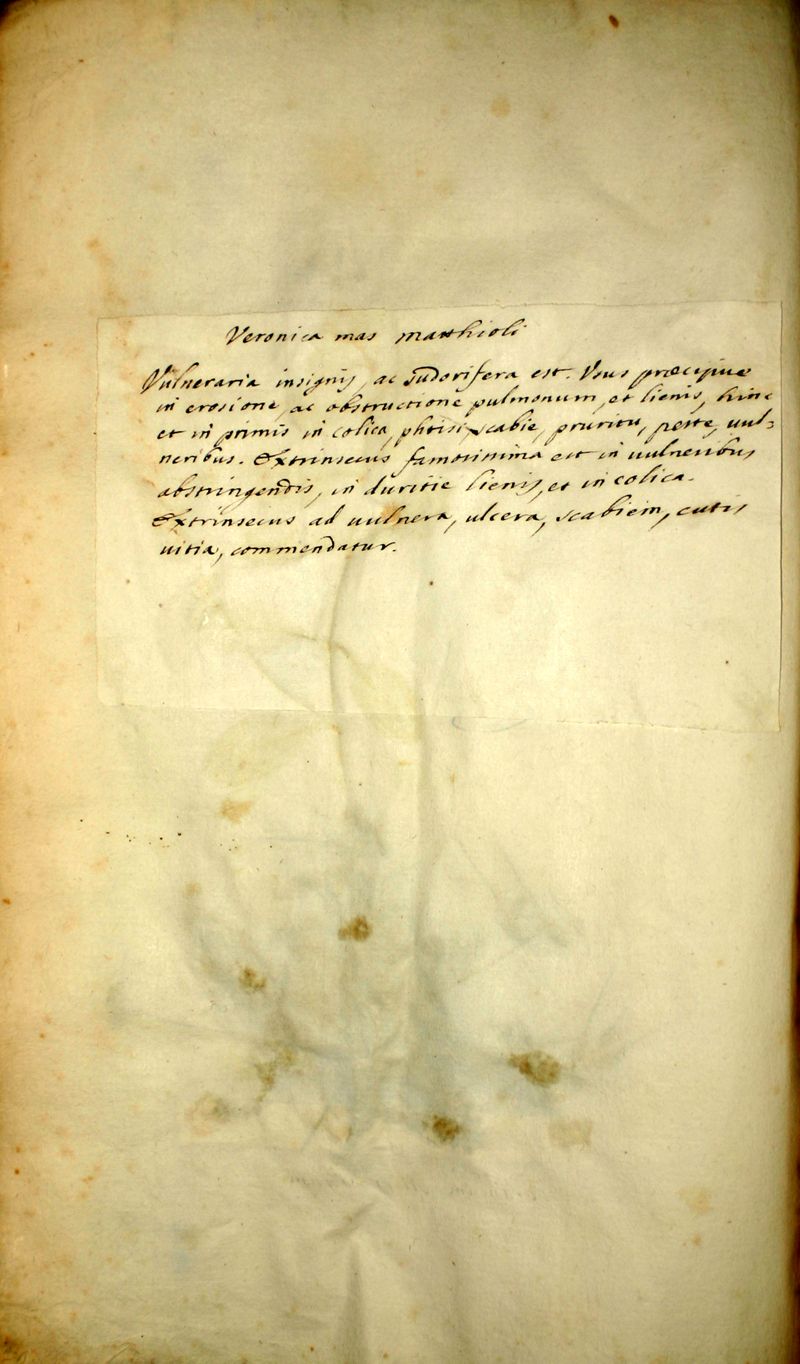 Veronica mas matthioli
Vulneraria insignis, ac sudorifera est. Usus præcipuæ
in erosione, ac obstructione pulmonum, et lienis, hinc
et in primis in colica, phtisi, scabie, pruritu, peste, uul-
neribus. Extrinsecus famosissima est in uulneribus
abstringendis, in duritie lienis, et in colica.
Extrinsecus ad uulnera, ulcera, scabiem, cutis
uitia, commendatur.